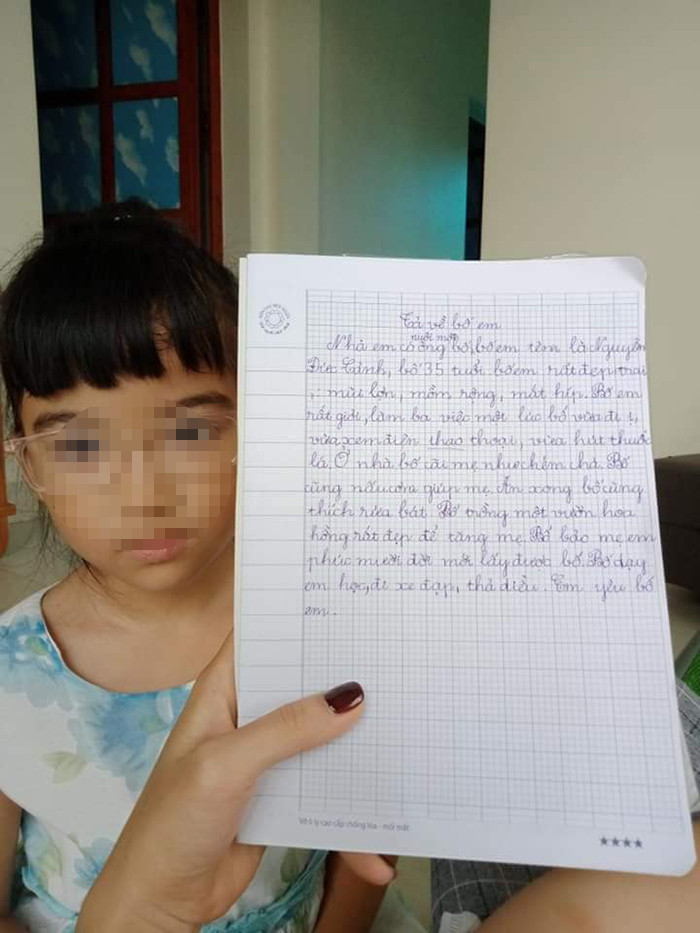 Tả về bố em
nuôi mới
Nhà em có ông bố, bố em tên là Nguyễn
Đức Cảnh, bố 35 tuổi bố em rất đẹp trai
,: mũi lớn, mồm rộng, mắt híp. Bố em
rất giỏi, làm ba việc một lúc bố vừa đi ị,
vừa xem điên thao thoại, vừa hút thuốc
lá. Ở nhà bố cãi mẹ như chém chả. Bố
cũng nấu cơm giúp mẹ. Ăn xong bố cũng
thích rửa bát. Bố trồng một vườn hoa
hồng rất đẹp để tăng mẹ. Bố bảo mẹ em
phúc mười đời mới lấy được bố. Bố dạy
em học, đi xe đạp, thả diều. Em yêu bố
em.
Vở ô ly cao cấp chống lóa - mỏi mắt